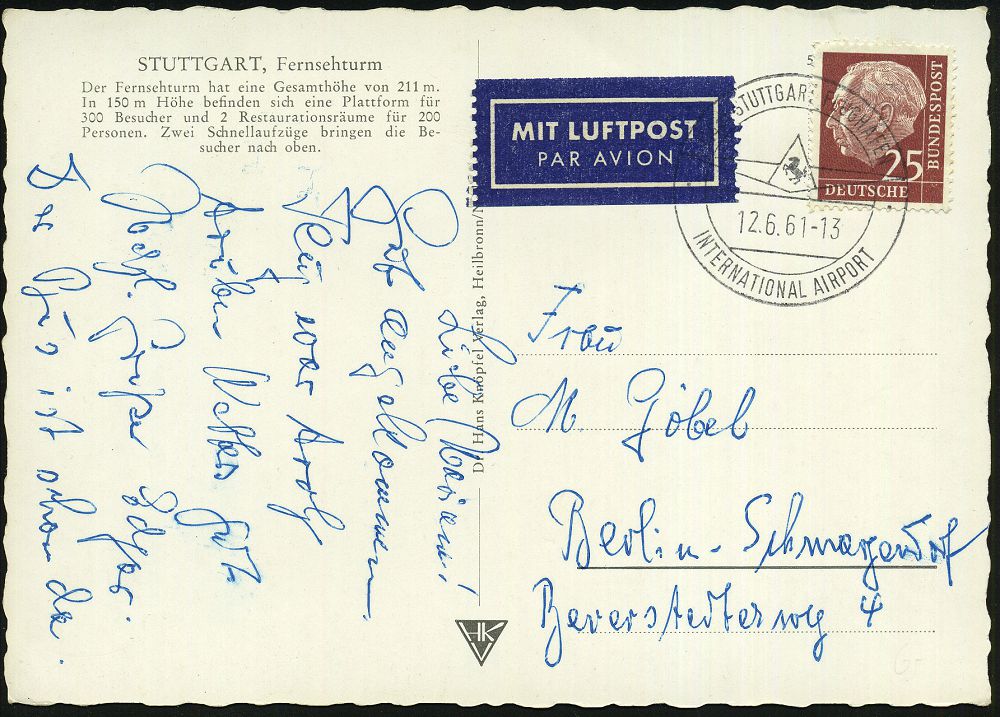 STUTTGART, Fernsehturm
Der Fernsehturm hat eine Gesamthöhe von 211 m.
In 150 m Höhe befinden sich eine Plattform für
300 Besucher und 2 Restaurationsräume für 200
Personen. Zwei Schnellaufzüge bringen die Be-
sucher nach oben.
MIT LUFTPOST
PAR AVION
STUTTGART
12.6.61-13
INTERNATIONAL AIRPORT
25
DEUTSCHE
BUNDESPOST
Hans Knöpfel Verlag, Heilbronn/
HK
Liebe
Gut angekommen.
war
Wetter gut.
Herzl. Grüße
ist schon da.
Frau
M. Göbel
Berlin-Schmargendorf
Beverstedterweg 4